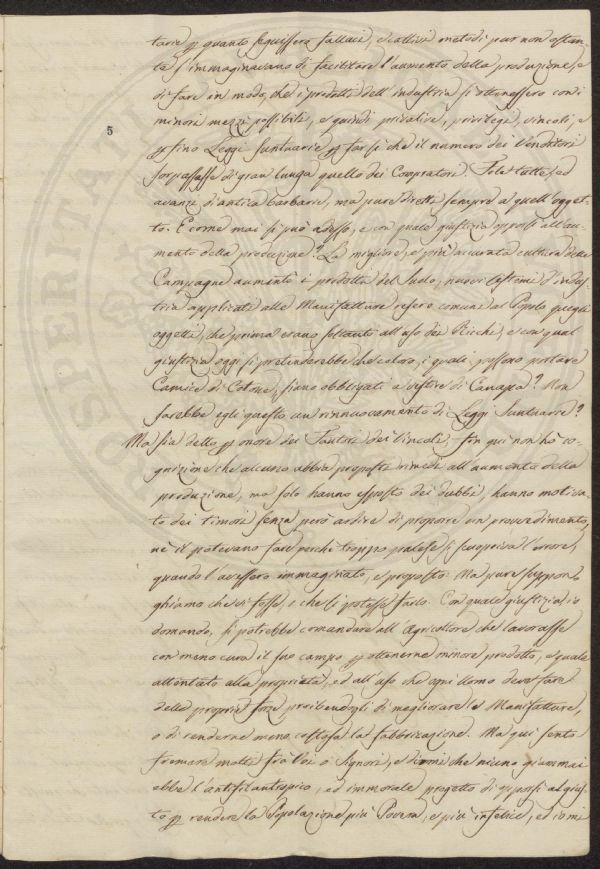 tarie p quanto seguissero fallaci, e cattivi metodi pur non ostan-
te s'immaginavano di facilitare l'aumento della produzione, e
di fare in modo, che i prodotti dell'industria si ottenessero con i
minori mezzi possibili, e quindi privative, privilegj, vincoli, e
5
p fino Leggi Suntuarie p far si che il numero dei Venditori
sorpassasse di gran lunga quello dei Compratori. Fole tutte, ed
avanzi di antica barbarie, ma pure dirette sempre a quell'ogget-
to. E come mai si può adesso, e con quale giustizia opporsi all'au-
mento della produzione? La migliore, e più accurata cultura delle
Campagne aumentò i prodotti del Suolo, nuovi sistemi d'indus-
tria applicati alle Manifatture resero comuni al Popolo quegli
oggetti, che prima erano soltanto all'uso dei Ricchi, e con qual
giustizia oggi si pretenderebbe che coloro, i quali possono portare
Camice di Cotone, siano obbligati a vestire di Canapa? Non
sarebbe egli questo un rinnuovamento di Leggi Suntuarie?
Ma sia detto p onore dei Fautori dei Vincoli, fin qui non hò co-
gnizione che alcuno abbia proposti rimedi all'aumento della
produzione, ma solo hanno esposto dei dubbi, hanno motiva-
to dei timori senza però ardire di proporre un provvedimento,
nè il potevano fare perchè troppo palese si scuopriva l'errore,
quando l'avessero immaginato, e proposto. Ma pure suppon-
ghiamo che vi fosse, e che si potesse farlo. Con quale giustizia io
domando, si potrebbe comandare all'Agricoltore che lavorasse
con meno cura il suo campo p ottenerne minore prodotto, e quale
attentato alla proprietà, ed all'uso che ogni Uomo deve fare
delle proprie forze, proibendogli di migliorare le Manifatture,
o di renderne meno costosa la fabbricazione. Ma qui sento
fremere molti frà Voi o Signori, e dirmi che niuno giammai
ebbe l'antifilantropico, ed immorale progetto di opporsi al gius-
to p rendere la Popolazione più Povera, e più infelice, ed io mi